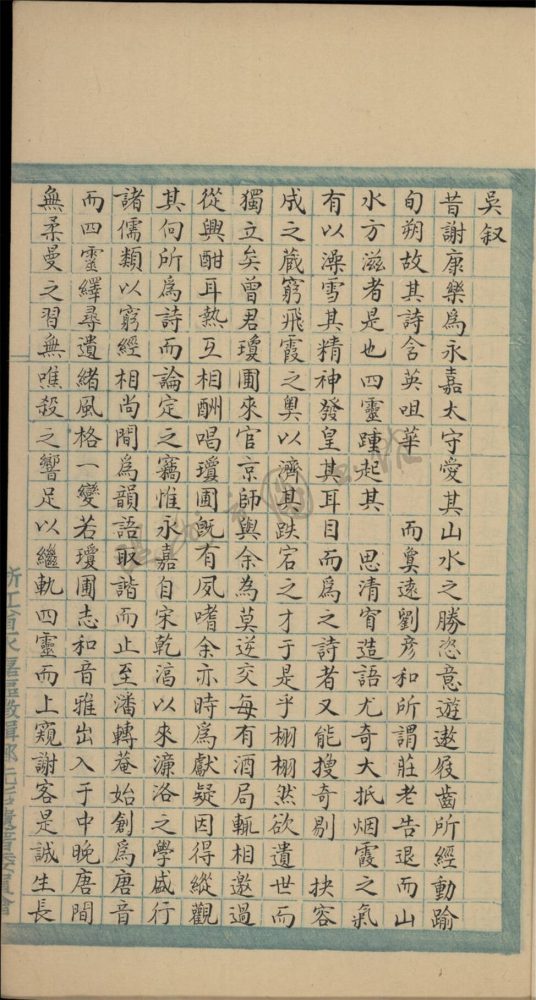 吴叙
昔謝康樂為永嘉太守愛其山水之勝恣意遊遨屐齒所經動踰
旬朔故其詩含英咀華　而奠遠劉彥和所謂莊老告退而山
水方滋者是也四靈踵起其　思清窅造語尤奇大抵烟霞之氣
有以澡雪其精神發皇其耳目而為之詩者又能搜奇剔　抉容
成之藏窮飛霞之奥以濟其跌宕之才于是乎栩栩然欲遺世而
獨立矣曾君瓊圃來官京師與余為莫逆交每有酒局輒相邀過
從興酣耳熱互相酬唱瓊圃既有夙嗜余亦時為獻疑因得縱觀
其向所為詩而論定之竊惟永嘉自宋乾淳以來濂洛之學盛行
諸儒類以窮經相尚間為韻語取諧而止至潘轉菴始創為唐音
而四靈繹尋遺緒風格一變若瓊圃志和音雅出入于中晚唐間
無柔曼之習無噍殺之響足以繼軌四靈而上窺謝客是誠生長